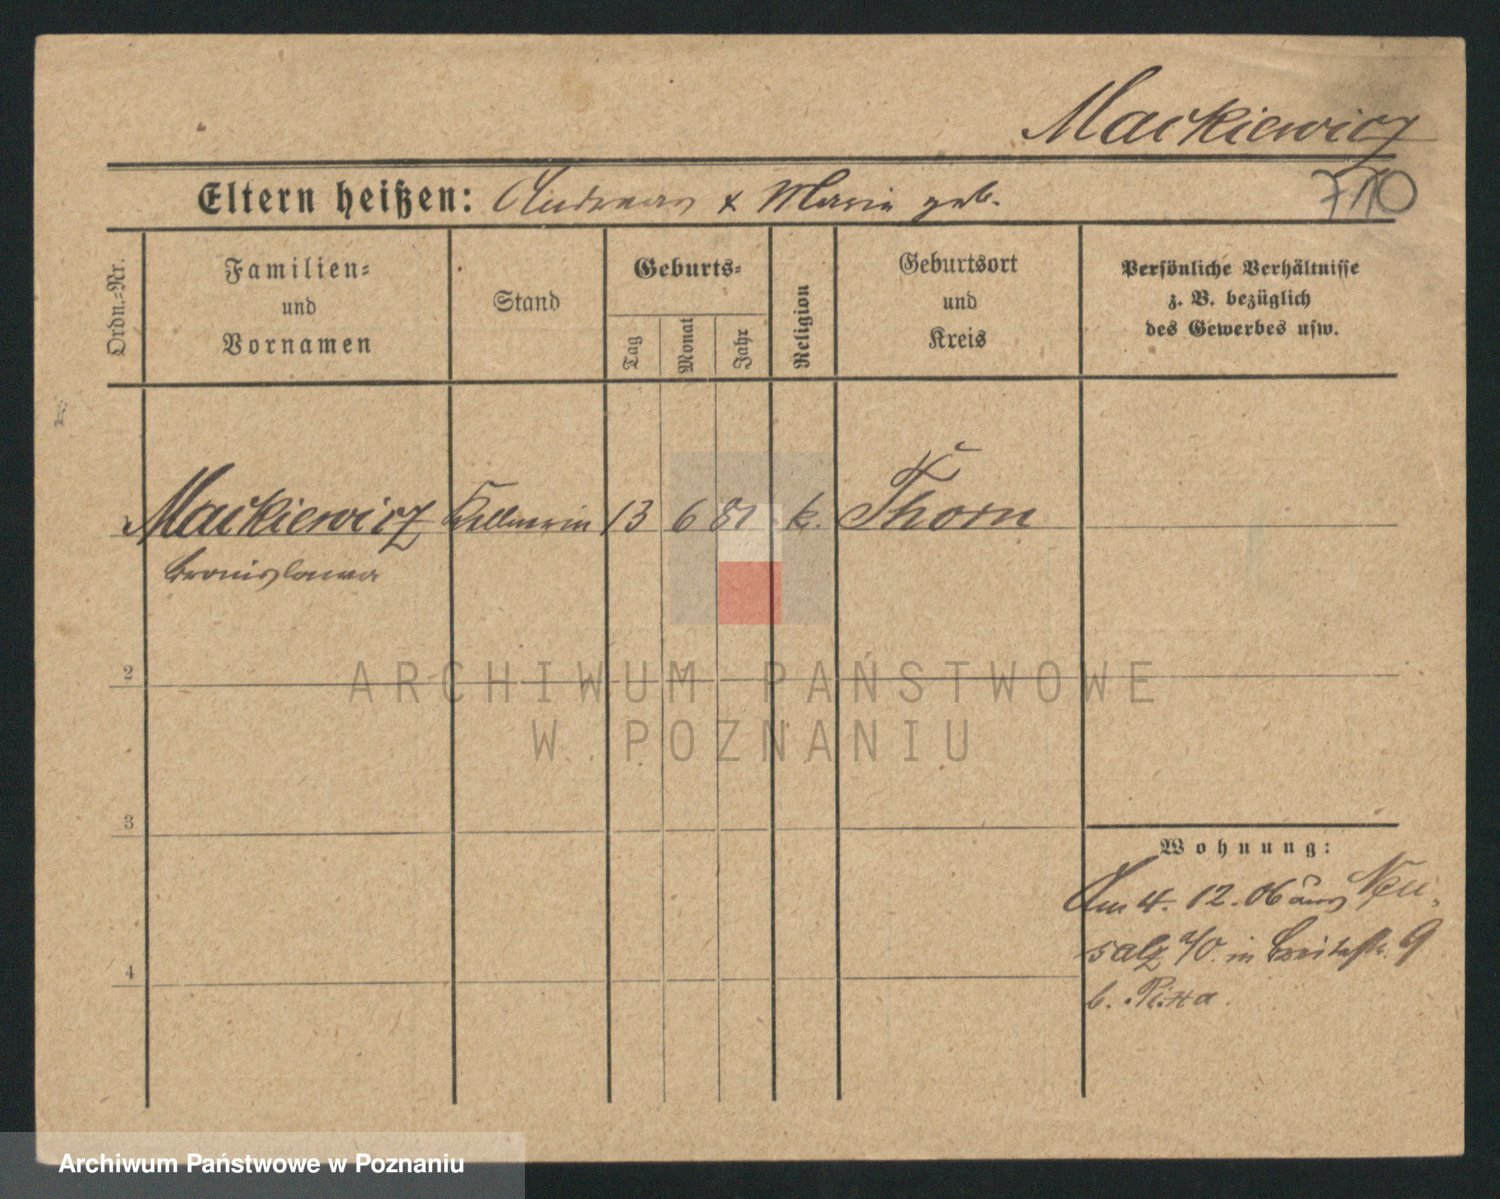 Mackiewicz
Eltern heißen: Andreas & Marie geb.
710
Ordn.=Nr.
Familien=
und
Vornamen
Stand
Geburts=
Tag
Monat
Jahr
Religion
Geburtsort
und
Kreis
Persönliche Verhältnisse
z. B. bezüglich
des Gewerbes usw.
Mackiewicz Kellnerin 13 6 81 k. Thorn
Bronislawa
ARCHIWUM PAŃSTWOWE
W POZNANIU
2
3
4
Wohnung:
Am 4. 12. 06 aus Neu-
salz a/O. in Breitestr. 9
b.
Archiwum Państwowe w Poznaniu